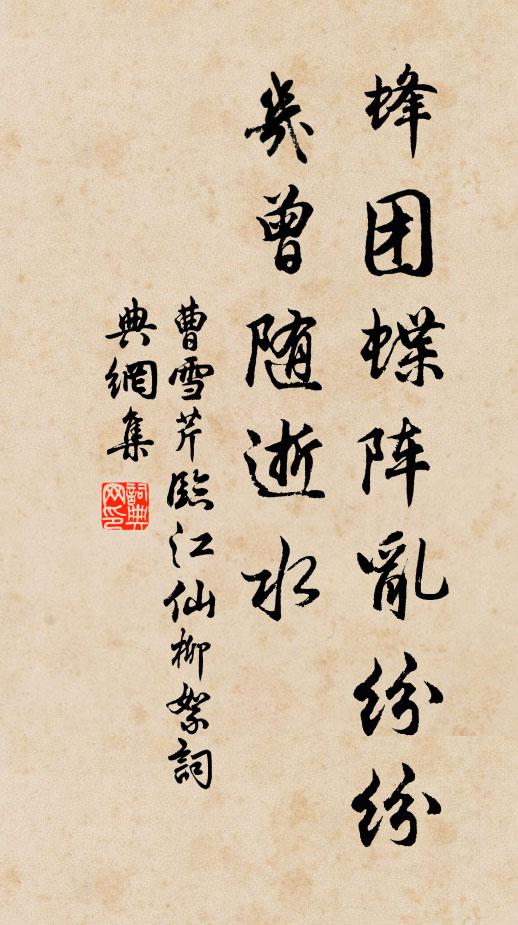 蜂团蝶阵亂纷纷
幾曾随逝水
曹雪芹臨江仙柳絮詞
典網集
詞典网印